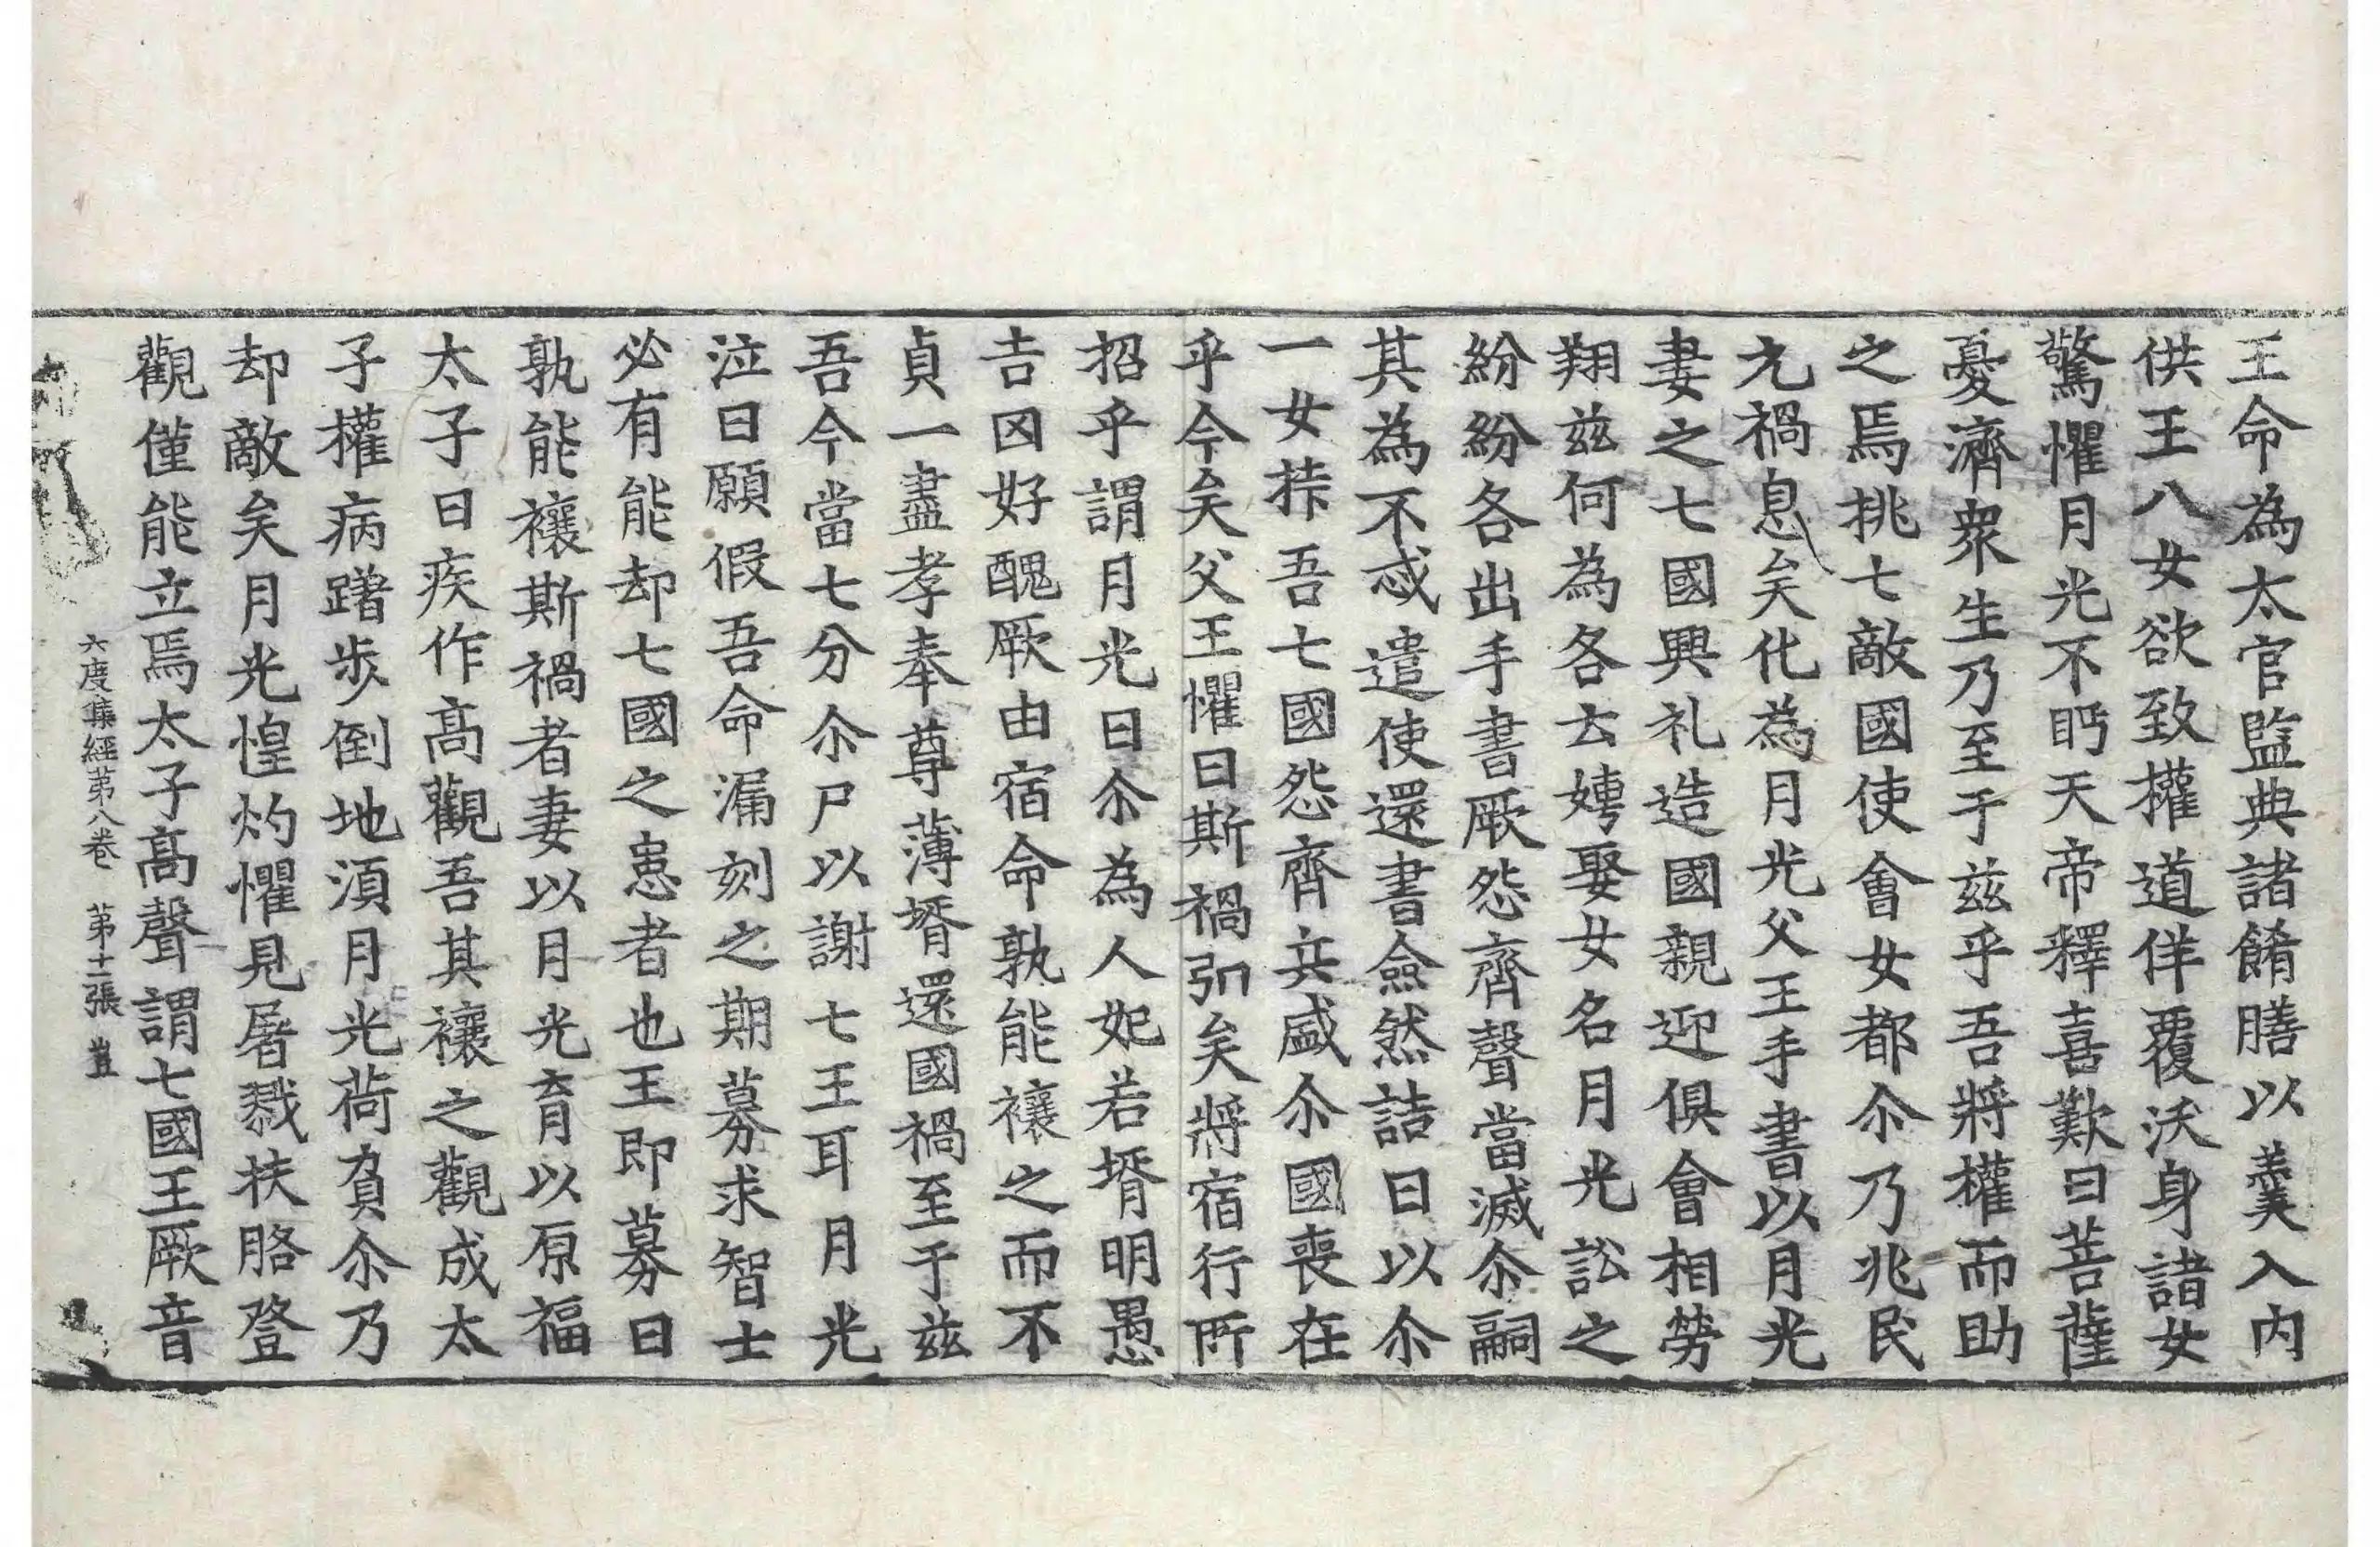 王命為太官監典諸餚膳以羹入內
供王八女欲致權道佯覆沃身諸女
驚懼月光不眄天帝釋喜歎曰菩薩
憂濟衆生乃至于兹乎吾將權而助
之焉挑七敵國使會女都尒乃兆民
元禍息矣化為月光父王手書以月光
妻之七國興礼造國親迎俱會相勞
翔兹何為各云娉娶女名月光訟之
紛紛各出手書厥怨齊聲當滅尒嗣
其為不忒遣使還書僉然詰曰以尒
一女挊吾七國怨齊兵盛尒國喪在
乎今矣父王懼曰斯禍弘矣將宿行所
招乎謂月光曰尒為人妃若壻明愚
吉凶好醜厥由宿命孰能禳之而不
貞一盡孝奉尊薄壻還國禍至于兹
吾今當七分尒尸以謝七王耳月光
泣曰願假吾命漏刻之期募求智士
必有能却七國之患者也王即募曰
孰能禳斯禍者妻以月光育以原福
太子曰疾作高觀吾其禳之觀成太
子權病躇步倒地湏月光荷負尒乃
却敵矣月光惶灼懼見屠戮扶胳登
觀僅能立焉太子高聲謂七國王厥音
六度集經第八卷 第十二張 豈